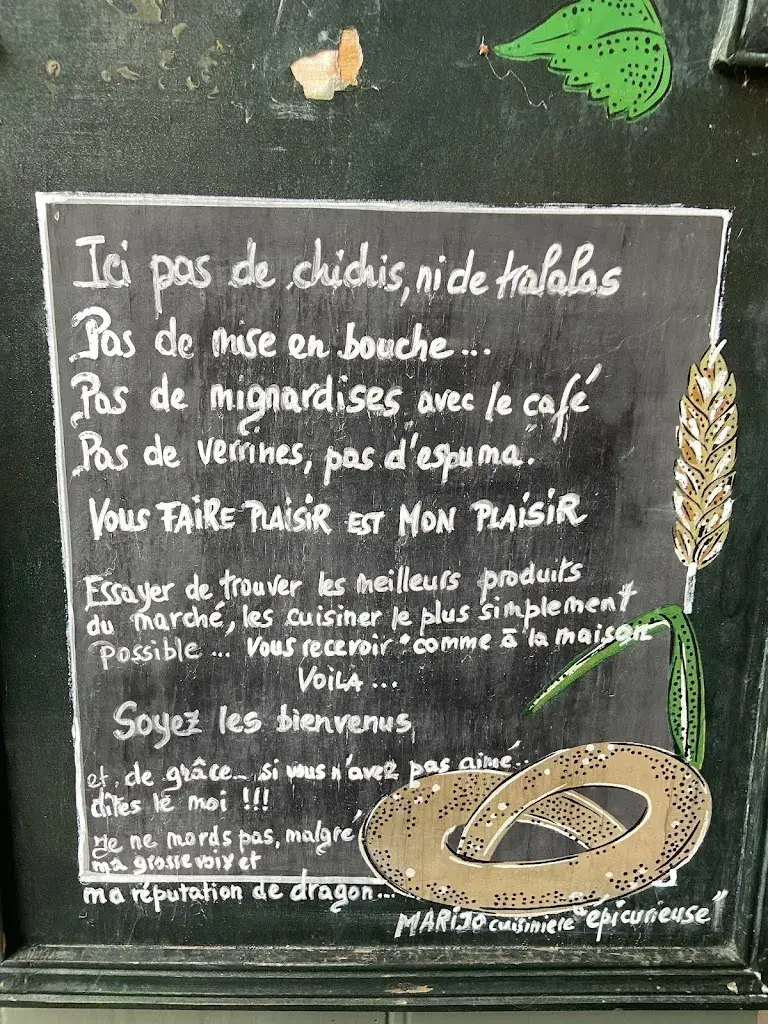 Ici pas de chichis, ni de tralalas
Pas de mise en bouche...
Pas de mignardises avec le café
Pas de verrines, pas d'espuma.
VOUS FAIRE PLAISIR EST MON PLAISIR
Essayer de trouver les meilleurs produits
du marché, les cuisiner le plus simplement
possible... Vous recevoir "comme à la maison
VOILA...
Soyez les bienvenus
et, de grâce... si vous n'avez pas aimé..
dites le moi !!!
Je ne mords pas, malgré
ma grosse voix et
ma réputation de dragon...
MARIJO cuisinière "épicurieuse"